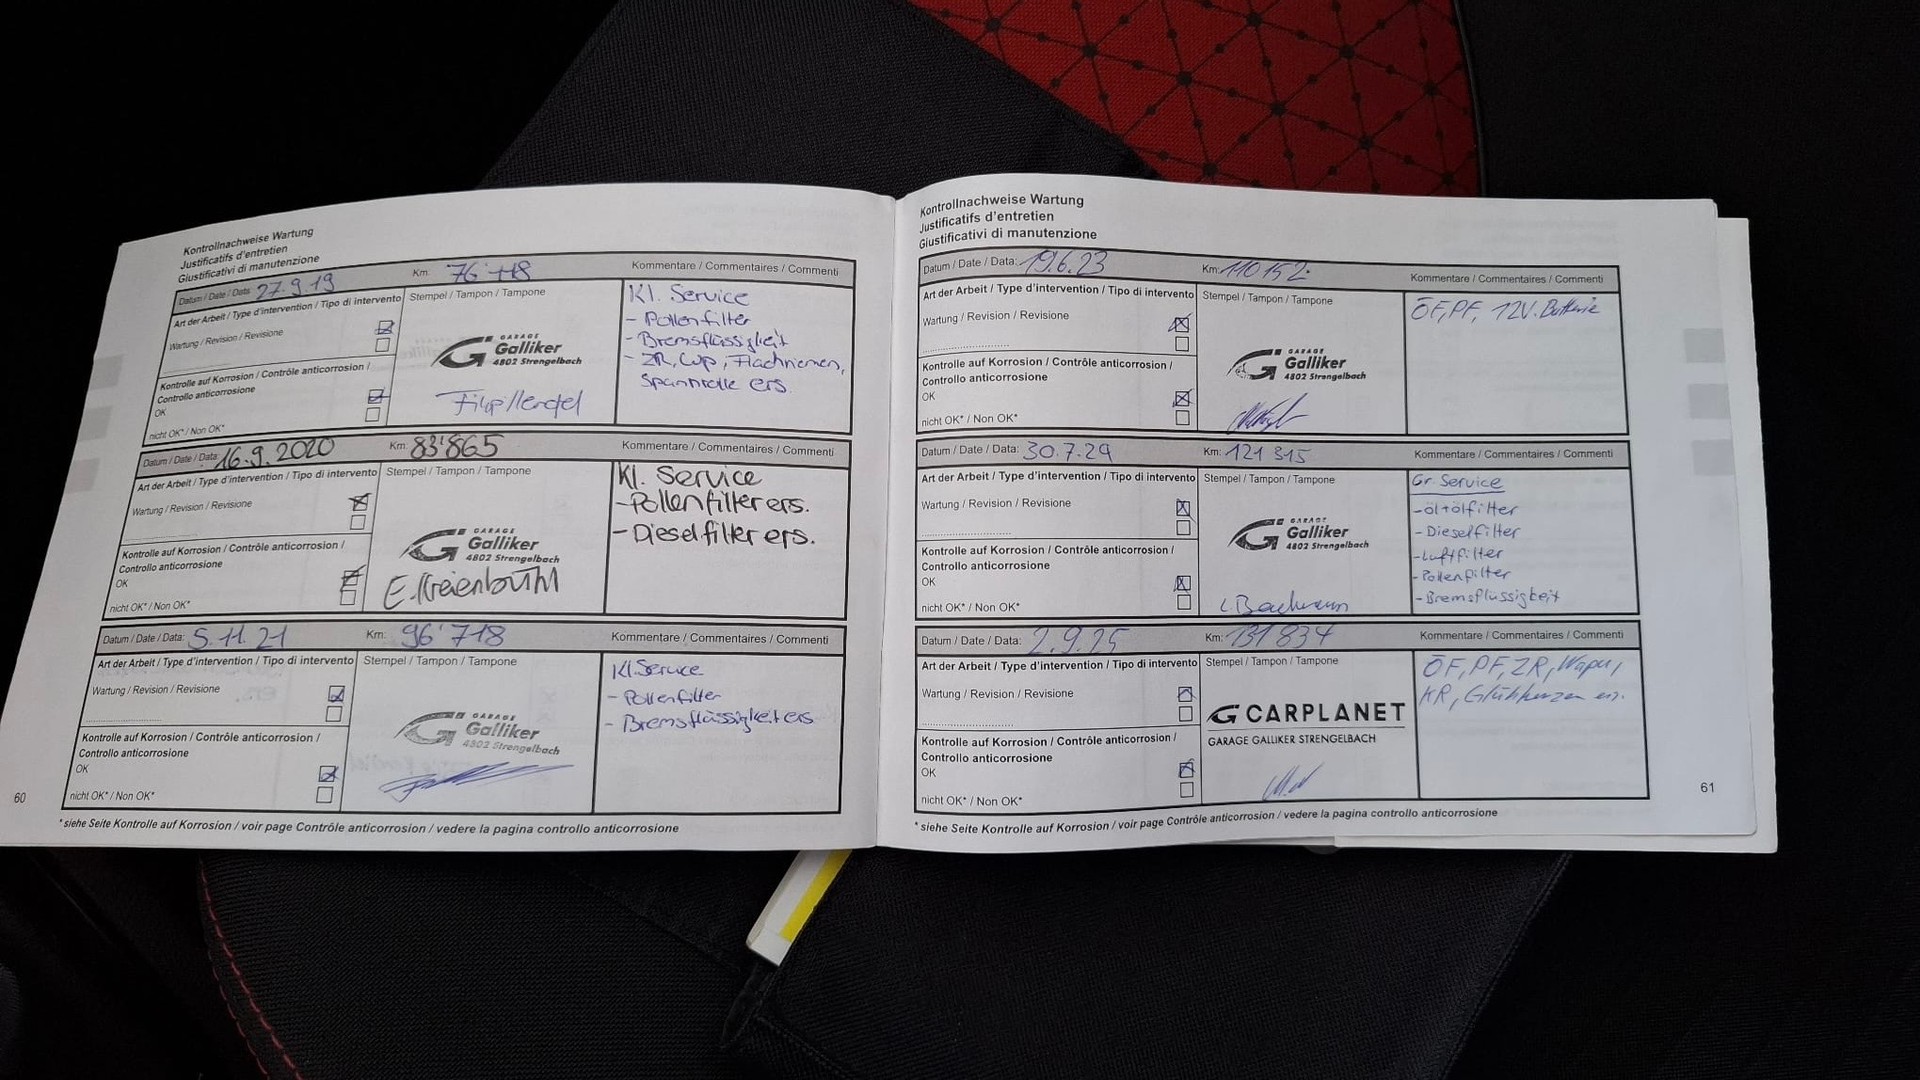 Kontrollnachweise Wartung
Justificatifs d'entretien
Giustificativi di manutenzione
Datum / Date / Data: 27.9.19 Km: 76'718 Kommentare / Commentaires / Commenti
Art der Arbeit / Type d'intervention / Tipo di intervento Stempel / Tampon / Tampone
Wartung / Revision / Revisione
Kontrolle auf Korrosion / Contrôle anticorrosion /
Controllo anticorrosione
OK
nicht OK* / Non OK*
GARAGE
Galliker
4802 Strengelbach
Kl. Service
- Pollenfilter
- Bremsflüssigkeit
- ZR, Wp, Flachriemen,
Spannrolle ers.
Datum / Date / Data: 16.9.2020 Km: 83'865 Kommentare / Commentaires / Commenti
Art der Arbeit / Type d'intervention / Tipo di intervento Stempel / Tampon / Tampone
Wartung / Revision / Revisione
Kontrolle auf Korrosion / Contrôle anticorrosion /
Controllo anticorrosione
OK
nicht OK* / Non OK*
GARAGE
Galliker
4802 Strengelbach
E. Kreienbühl
Kl. Service
- Pollenfilter ers.
- Dieselfilter ers.
Datum / Date / Data: 5.11.21 Km: 96'718 Kommentare / Commentaires / Commenti
Art der Arbeit / Type d'intervention / Tipo di intervento Stempel / Tampon / Tampone
Wartung / Revision / Revisione
Kontrolle auf Korrosion / Contrôle anticorrosion /
Controllo anticorrosione
OK
nicht OK* / Non OK*
GARAGE
Galliker
4802 Strengelbach
Kl. Service
- Pollenfilter
- Bremsflüssigkeit ers
60
* siehe Seite Kontrolle auf Korrosion / voir page Contrôle anticorrosion / vedere la pagina controllo anticorrosione
Kontrollnachweise Wartung
Justificatifs d'entretien
Giustificativi di manutenzione
Datum / Date / Data: 19.6.23 Km: 110 152 Kommentare / Commentaires / Commenti
Art der Arbeit / Type d'intervention / Tipo di intervento Stempel / Tampon / Tampone
Wartung / Revision / Revisione
Kontrolle auf Korrosion / Contrôle anticorrosion /
Controllo anticorrosione
OK
nicht OK* / Non OK*
GARAGE
Galliker
4802 Strengelbach
ÖF, PF, 12V. Batterie
Datum / Date / Data: 30.7.24 Km: 121 815 Kommentare / Commentaires / Commenti
Art der Arbeit / Type d'intervention / Tipo di intervento Stempel / Tampon / Tampone
Wartung / Revision / Revisione
Kontrolle auf Korrosion / Contrôle anticorrosion /
Controllo anticorrosione
OK
nicht OK* / Non OK*
GARAGE
Galliker
4802 Strengelbach
L Bachmann
Gr. Service
- öl+ölfilter
- Dieselfilter
- Luftfilter
- Pollenfilter
- Bremsflüssigkeit
Datum / Date / Data: 2.9.25 Km: 131 834 Kommentare / Commentaires / Commenti
Art der Arbeit / Type d'intervention / Tipo di intervento Stempel / Tampon / Tampone
Wartung / Revision / Revisione
Kontrolle auf Korrosion / Contrôle anticorrosion /
Controllo anticorrosione
OK
nicht OK* / Non OK*
CARPLANET
GARAGE GALLIKER STRENGELBACH
ÖF, PF, ZR, Wapu,
KR, Glühkerzen ers.
61
* siehe Seite Kontrolle auf Korrosion / voir page Contrôle anticorrosion / vedere la pagina controllo anticorrosione